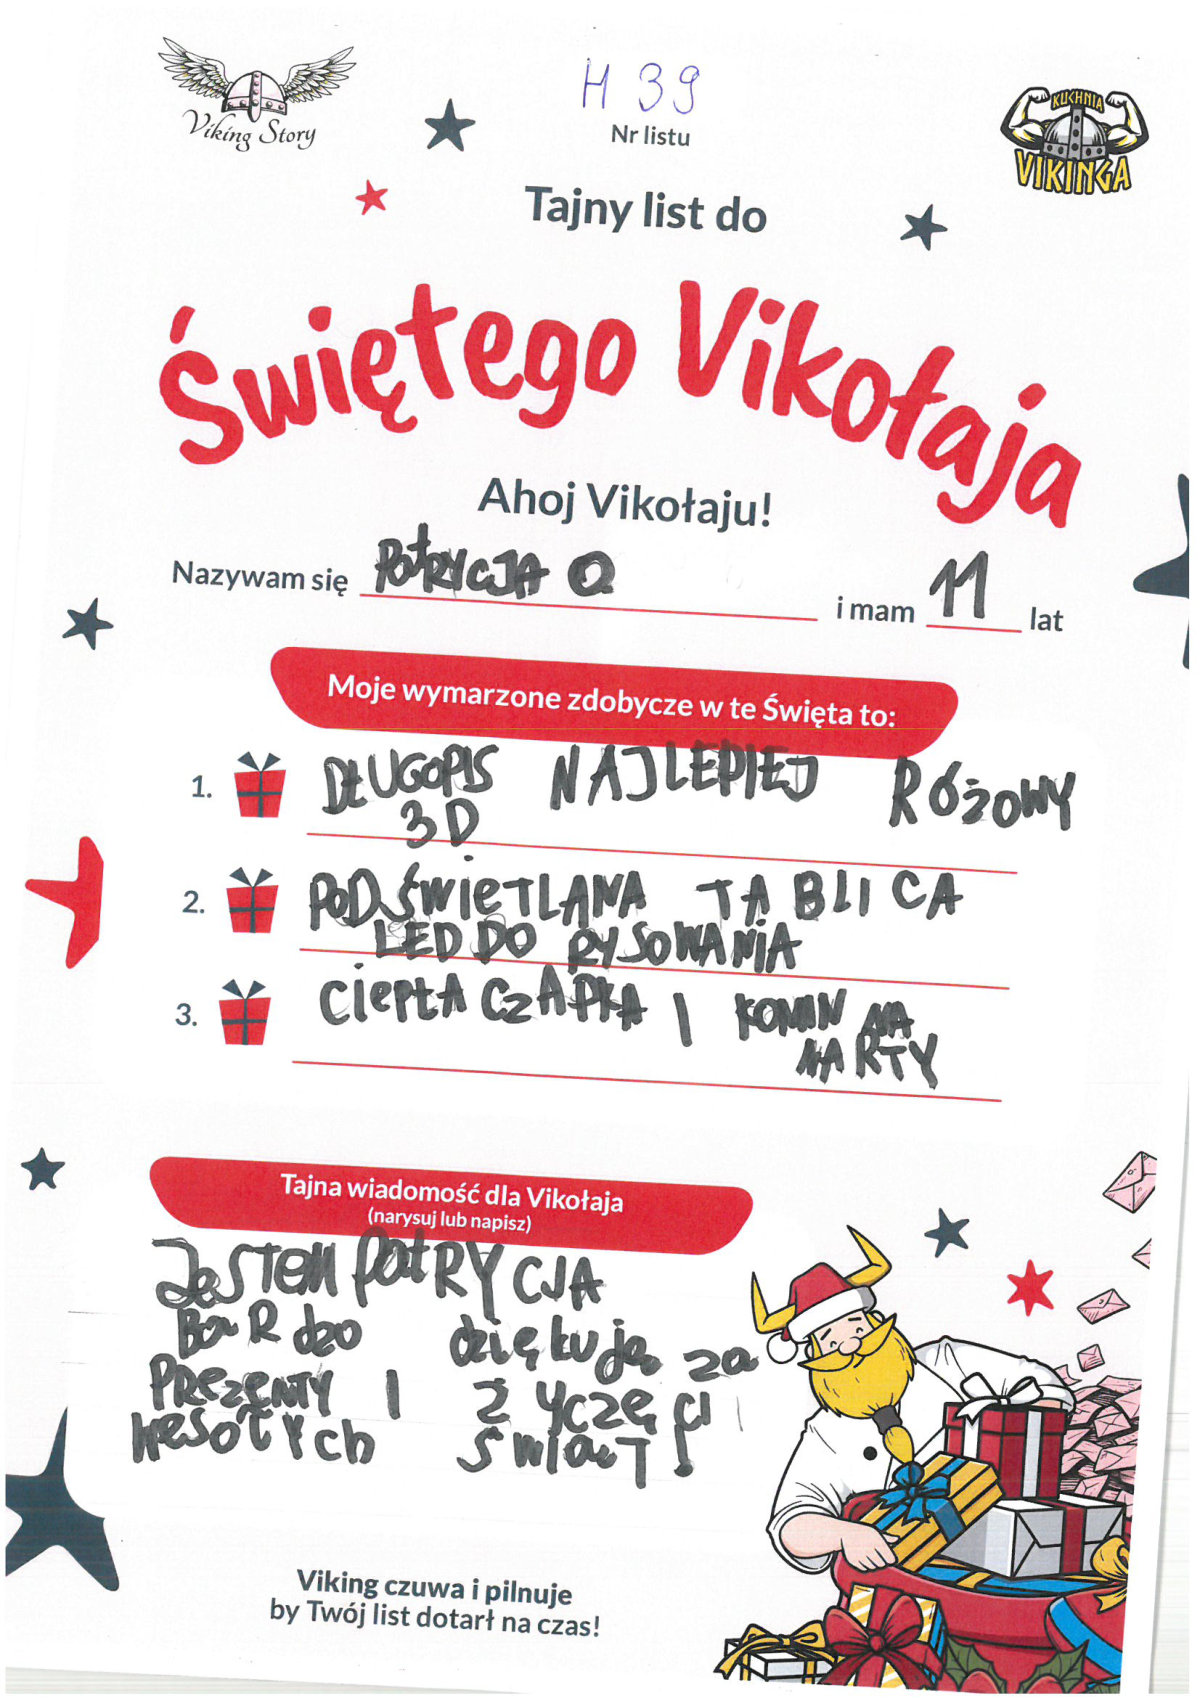 H 39
Viking Story
Nr listu
KUCHNIA
VIKINGA
Tajny list do
Świętego Vikołaja
Ahoj Vikołaju!
Nazywam się PatRYCJA O i mam 11 lat
Moje wymarzone zdobycze w te Święta to:
1. DŁUGOPIS NAJLEPIEJ RÓŻOWY
3D
2. PODŚwieTLANA TABLICA
LED DO RYSOWANIA
3. CIEPŁA CZAPKA I KOMIN NA
NARTY
Tajna wiadomość dla Vikołaja
(narysuj lub napisz)
JeSTem PatRYCJA
BaRdzo dziękuję za
PREZENTY I ŻYCZĘ CI
WESOŁYch ŚwiąT!
Viking czuwa i pilnuje
by Twój list dotarł na czas!